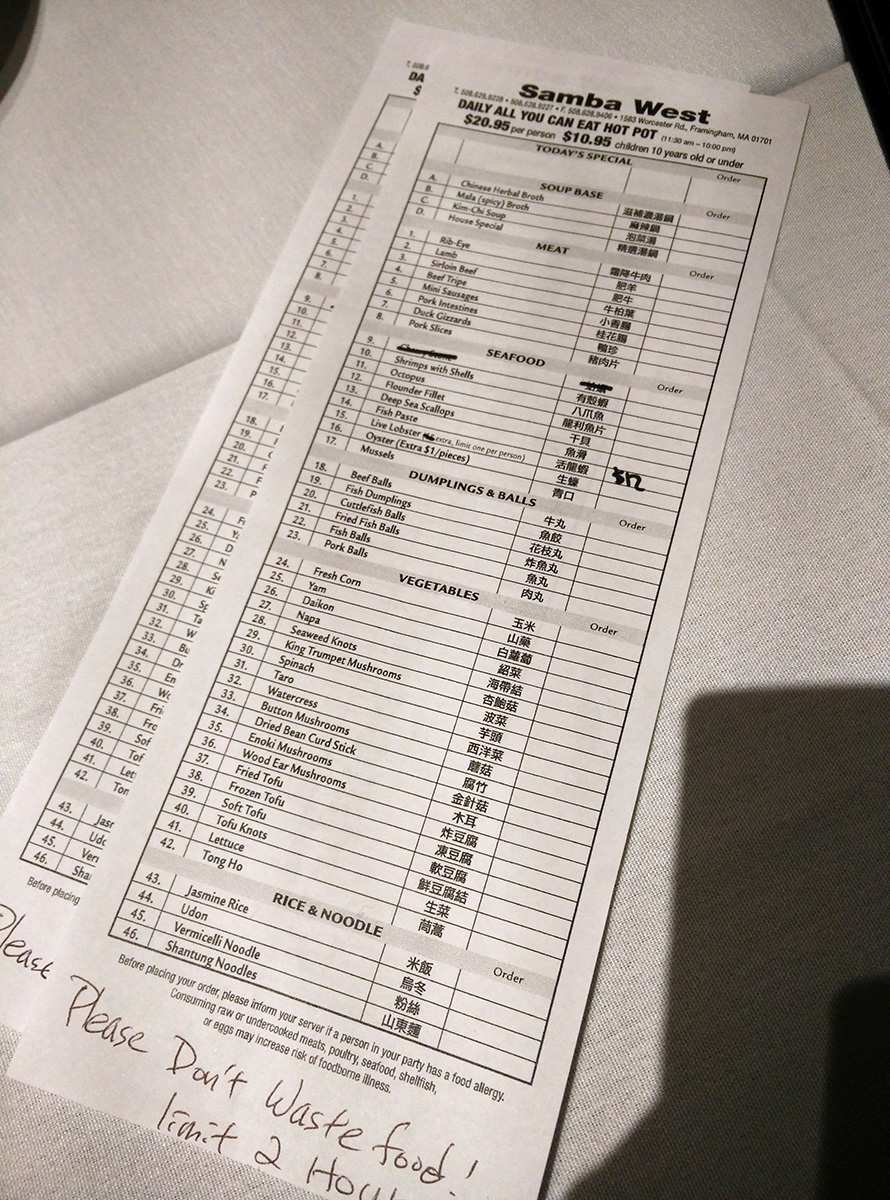 Samba West
T. 508.626.9228 • 508.626.9227 • F. 508.628.9406 • 1583 Worcester Rd., Framingham, MA 01701
DAILY ALL YOU CAN EAT HOT POT (11:30 am – 10:00 pm)
$20.95 per person $10.95 children 10 years old or under
TODAY'S SPECIAL Order
SOUP BASE Order
A. Chinese Herbal Broth 滋補濃湯鍋
B. Mala (spicy) Broth 麻辣鍋
C. Kim-Chi Soup 泡菜湯
D. House Special 精選湯鍋
MEAT Order
1. Rib-Eye 霜降牛肉
2. Lamb 肥羊
3. Sirloin Beef 肥牛
4. Beef Tripe 牛柏葉
5. Mini Sausages 小香腸
6. Pork Intestines 桂花腸
7. Duck Gizzards 鴨珍
8. Pork Slices 豬肉片
SEAFOOD Order
9.
10. Shrimps with Shells 有殼蝦
11. Octopus 八爪魚
12. Flounder Fillet 龍利魚片
13. Deep Sea Scallops 干貝
14. Fish Paste 魚滑
15. Live Lobster extra, limit one per person) 活龍蝦
16. Oyster (Extra $1/pieces) 生蠔
17. Mussels 青口
DUMPLINGS & BALLS Order
18. Beef Balls 牛丸
19. Fish Dumplings 魚餃
20. Cuttlefish Balls 花枝丸
21. Fried Fish Balls 炸魚丸
22. Fish Balls 魚丸
23. Pork Balls 肉丸
VEGETABLES Order
24. Fresh Corn 玉米
25. Yam 山藥
26. Daikon 白蘿蔔
27. Napa 紹菜
28. Seaweed Knots 海帶結
29. King Trumpet Mushrooms 杏鮑菇
30. Spinach 波菜
31. Taro 芋頭
32. Watercress 西洋菜
33. Button Mushrooms 蘑菇
34. Dried Bean Curd Stick 腐竹
35. Enoki Mushrooms 金針菇
36. Wood Ear Mushrooms 木耳
37. Fried Tofu 炸豆腐
38. Frozen Tofu 凍豆腐
39. Soft Tofu 軟豆腐
40. Tofu Knots 鮮豆腐結
41. Lettuce 生菜
42. Tong Ho 茼蒿
RICE & NOODLE Order
43. Jasmine Rice 米飯
44. Udon 烏冬
45. Vermicelli Noodle 粉絲
46. Shantung Noodles 山東麵
Before placing your order, please inform your server if a person in your party has a food allergy.
Consuming raw or undercooked meats, poultry, seafood, shellfish,
or eggs may increase risk of foodborne illness.
Please Don't Waste food!
limit 2 Hou
Before placing
Please